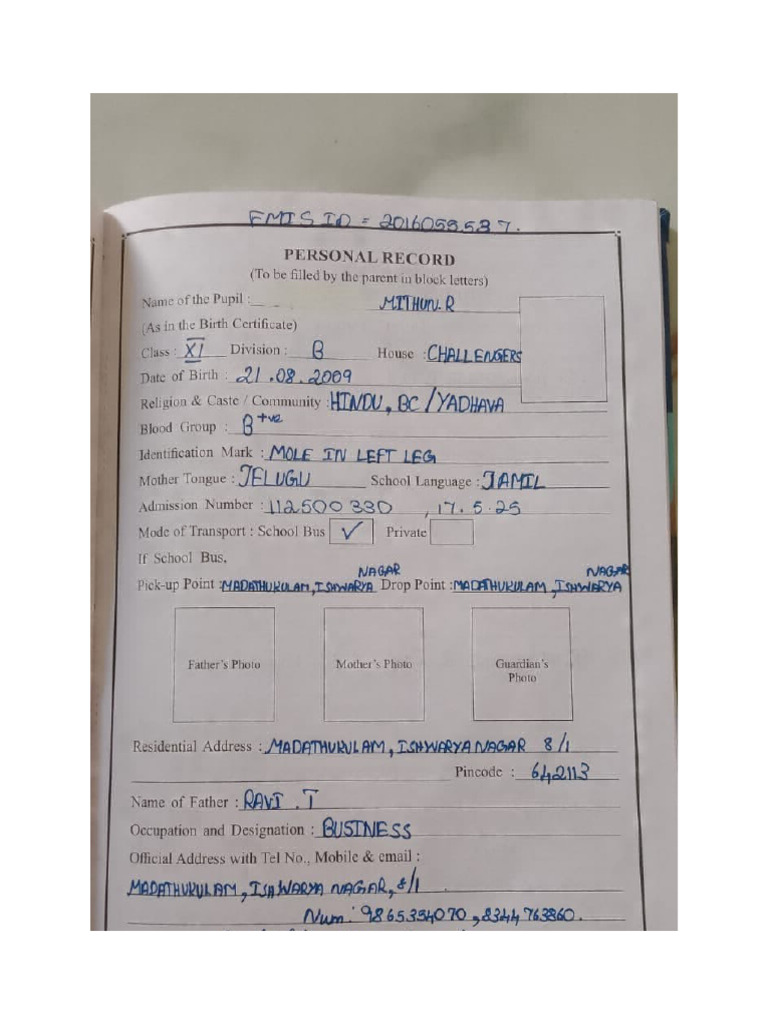 EMIS ID = 2016055537.
PERSONAL RECORD
(To be filled by the parent in block letters)
Name of the Pupil : MITHUN.R
(As in the Birth Certificate)
Class : XI Division : B House : CHALLENGERS
Date of Birth : 21.08.2009
Religion & Caste / Community : HINDU, BC/YADHAVA
Blood Group : B +ve
Identification Mark : MOLE IN LEFT LEG
Mother Tongue : TELUGU School Language : TAMIL
Admission Number : 112500330, 17.5.25
Mode of Transport : School Bus ✓ Private
If School Bus,
NAGAR NAGAR
Pick-up Point : MADATHUKULAM, ISHWARYA Drop Point : MADATHUKULAM, ISHWARYA
Father's Photo Mother's Photo Guardian's
Photo
Residential Address : MADATHUKULAM, ISHWARYA NAGAR 8/1
Pincode : 642113
Name of Father : RAVI .T
Occupation and Designation : BUSINESS
Official Address with Tel No., Mobile & email :
MADATHUKULAM, ISHWARYA NAGAR, 8/1
Num: 9865354070, 8344763860.